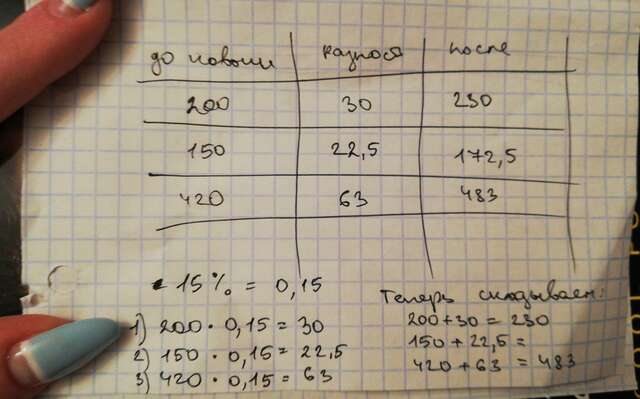 до повыш разност после
200 30 230
150 22,5 172,5
420 63 483
15% = 0,15
1) 200 · 0,15 = 30
2) 150 · 0,15 = 22,5
3) 420 · 0,15 = 63
Теперь складываем:
200 + 30 = 230
150 + 22,5 =
420 + 63 = 483